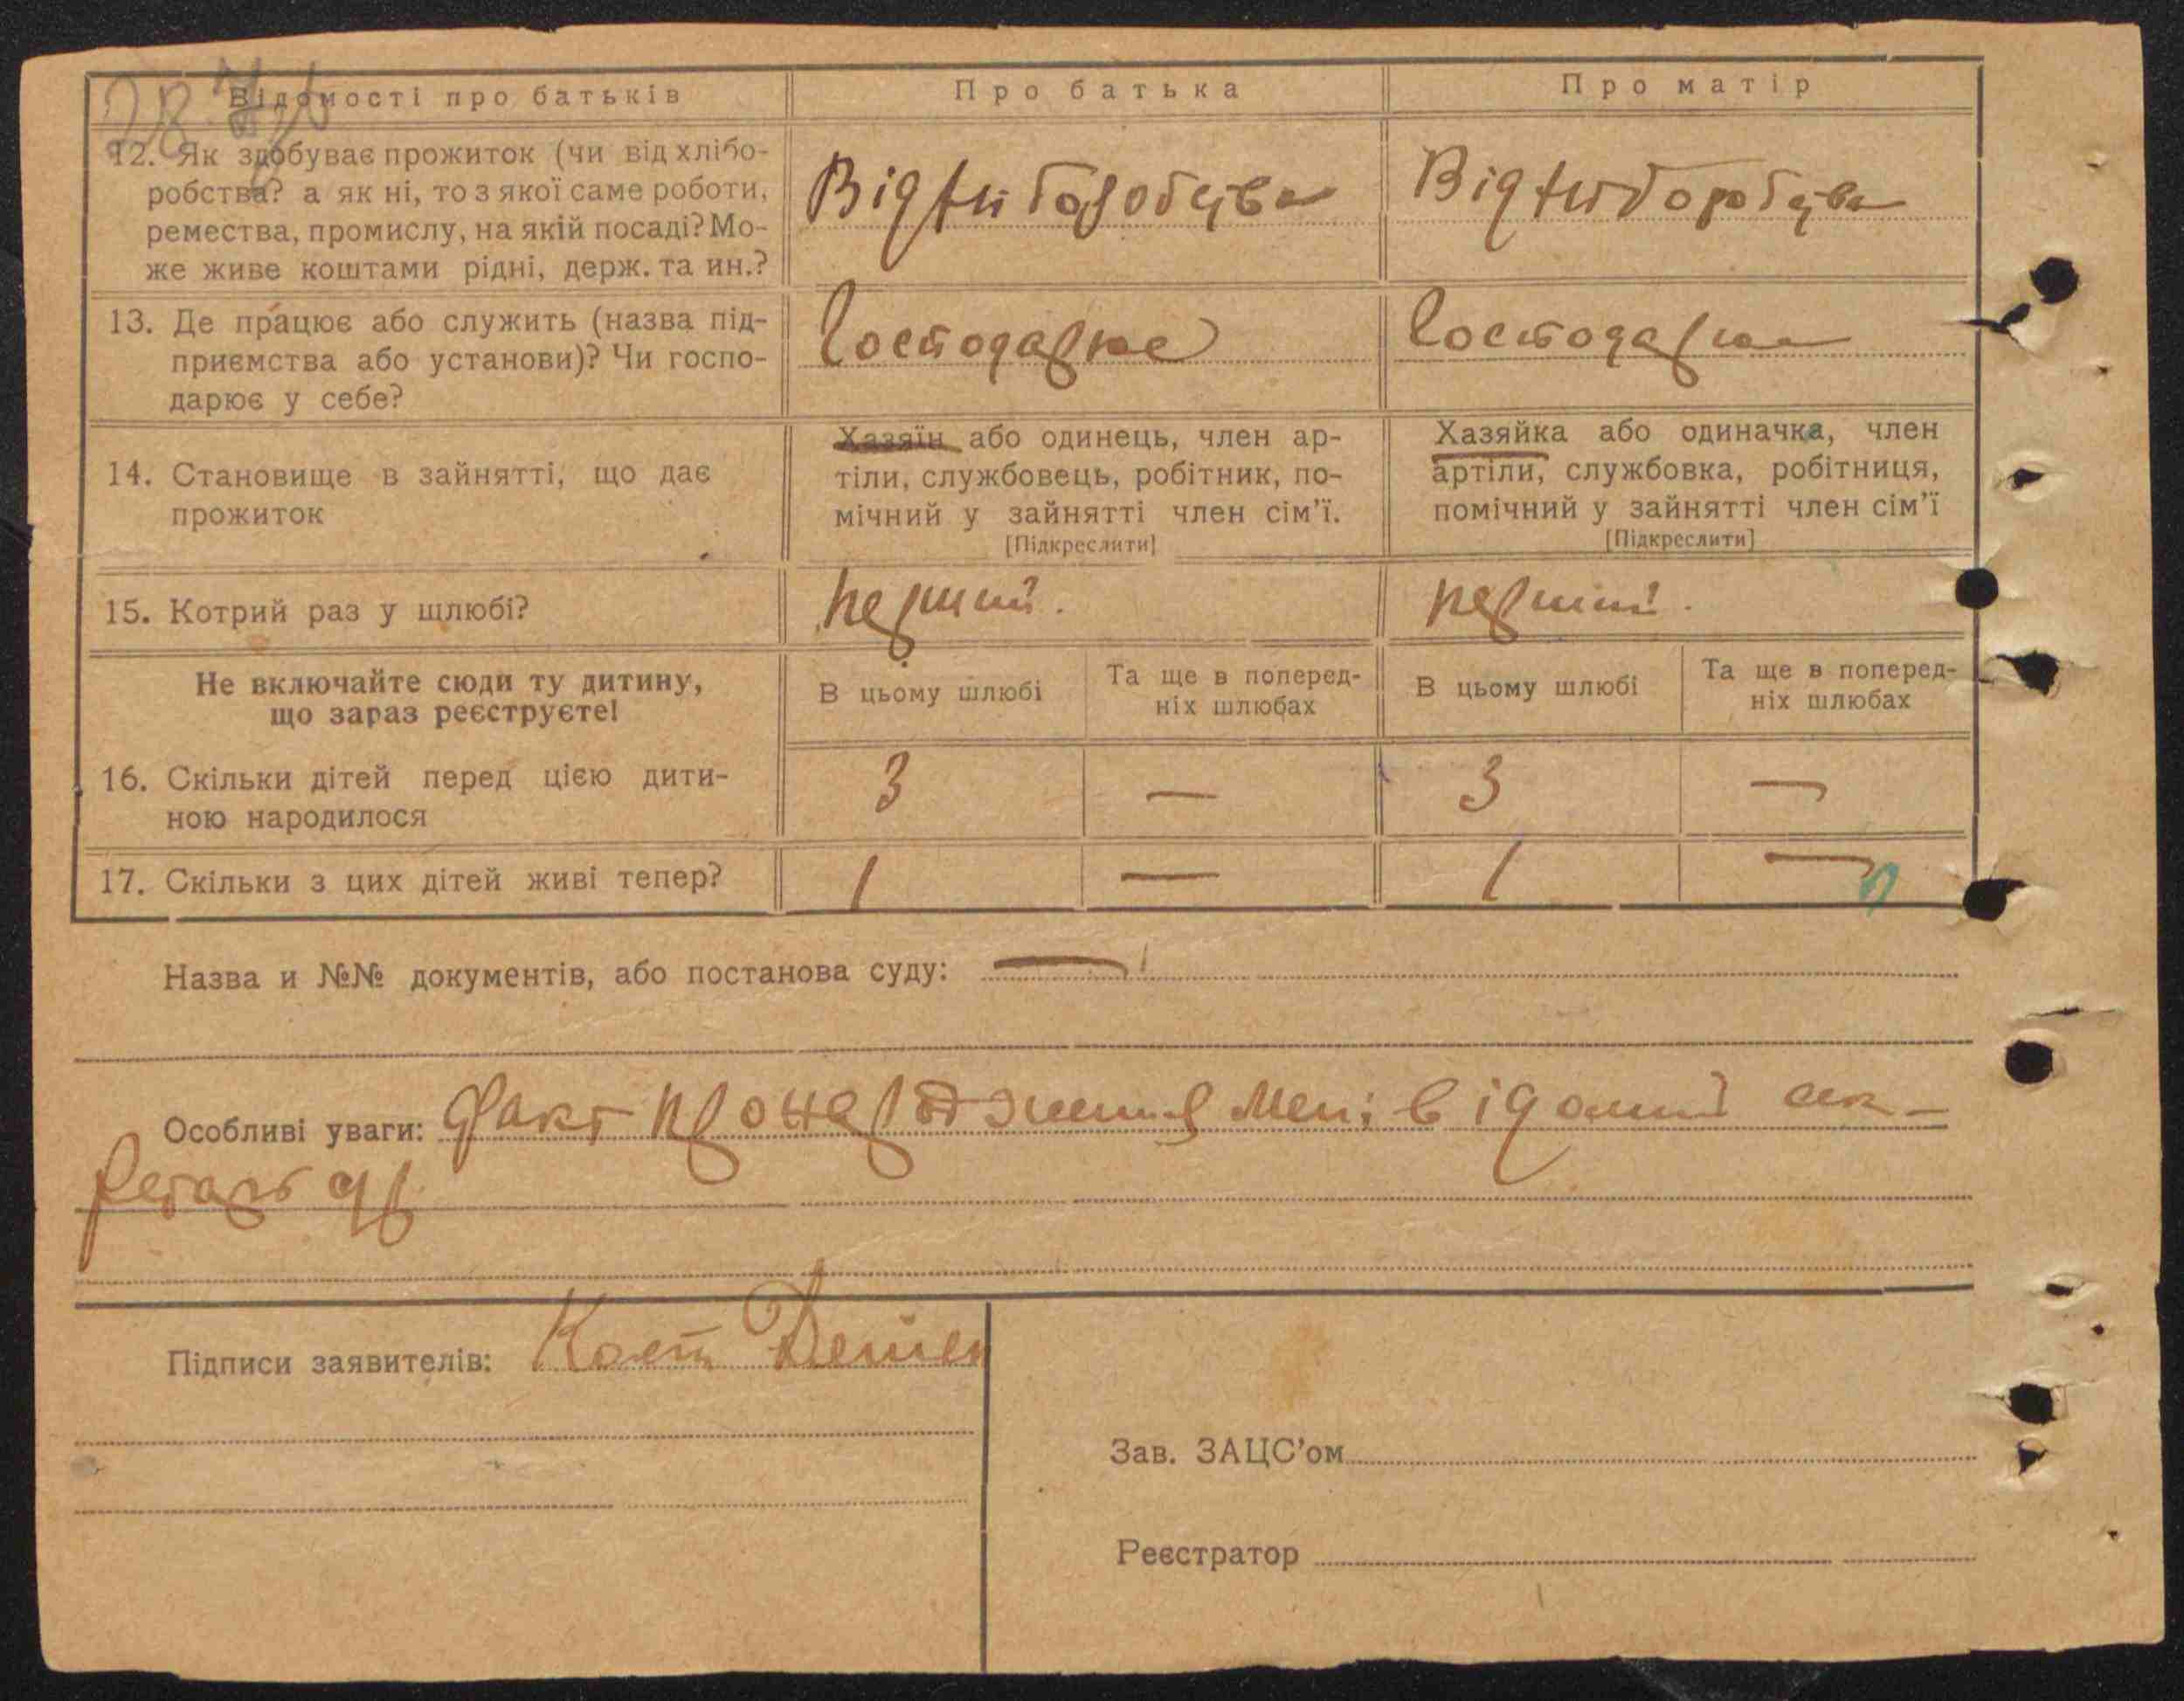 Відомості про батьків
Про батька
Про матір
12. Як здобуває прожиток (чи від хлібо-
робства? а як ні, то з якої саме роботи,
ремества, промислу, на якій посаді? Мо-
же живе коштами рідні, держ. та ин.?
Від хлиборобства
Від хлиборобства
13. Де працює або служить (назва під-
приємства або установи)? Чи госпо-
дарює у себе?
Господарює
Господарює
14. Становище в зайнятті, що дає
прожиток
Хазяїн або одинець, член ар-
тіли, службовець, робітник, по-
мічний у зайнятті член сім'ї.
[Підкреслити]
Хазяйка або одиначка, член
артіли, службовка, робітниця,
помічний у зайнятті член сім'ї
[Підкреслити]
15. Котрий раз у шлюбі?
перший.
перший.
Не включайте сюди ту дитину,
що зараз реєструєте!
В цьому шлюбі
Та ще в поперед-
ніх шлюбах
В цьому шлюбі
Та ще в поперед-
ніх шлюбах
16. Скільки дітей перед цією дити-
ною народилося
3 — 3 —
17. Скільки з цих дітей живі тепер?
1 — 1 —
Назва и №№ документів, або постанова суду: —
Особливі уваги: Факт про народження мені відомий сек-
ретарь
Підписи заявителів:
Зав. ЗАЦС'ом
Реєстратор